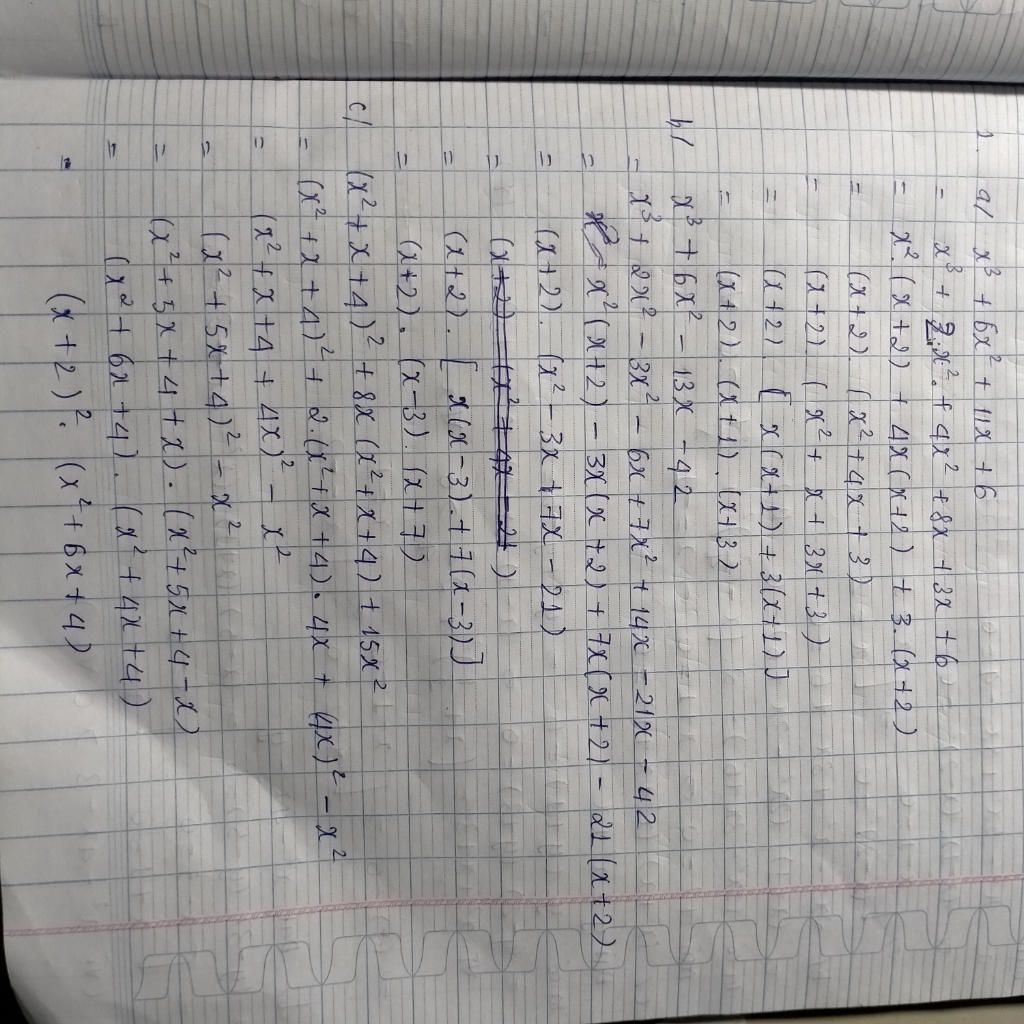 1. a/ x³ + 6x² + 11x + 6
= x³ + 2.x² + 4x² + 8x + 3x + 6
= x². (x+2) + 4x(x+2) + 3.(x+2)
= (x+2). (x² + 4x + 3)
= (x+2). (x² + x + 3x + 3)
= (x+2). [x(x+1) + 3(x+1)]
= (x+2). (x+1). (x+3)
b/ x³ + 6x² - 13x - 42
= x³ + 2x² - 3x² - 6x + 7x² + 14x - 21x - 42
= x²(x+2) - 3x(x+2) + 7x(x+2) - 21(x+2)
= (x+2). (x² - 3x + 7x - 21)
= (x+2) (x² + 4x - 21)
= (x+2). [x(x-3) + 7(x-3)]
= (x+2). (x-3). (x+7)
c/ (x² + x + 4)² + 8x(x² + x + 4) + 15x²
= (x² + x + 4)² + 2.(x² + x + 4). 4x + (4x)² - x²
= (x² + x + 4 + 4x)² - x²
= (x² + 5x + 4)² - x²
= (x² + 5x + 4 + x). (x² + 5x + 4 - x)
= (x² + 6x + 4). (x² + 4x + 4)
= (x+2)². (x² + 6x + 4)